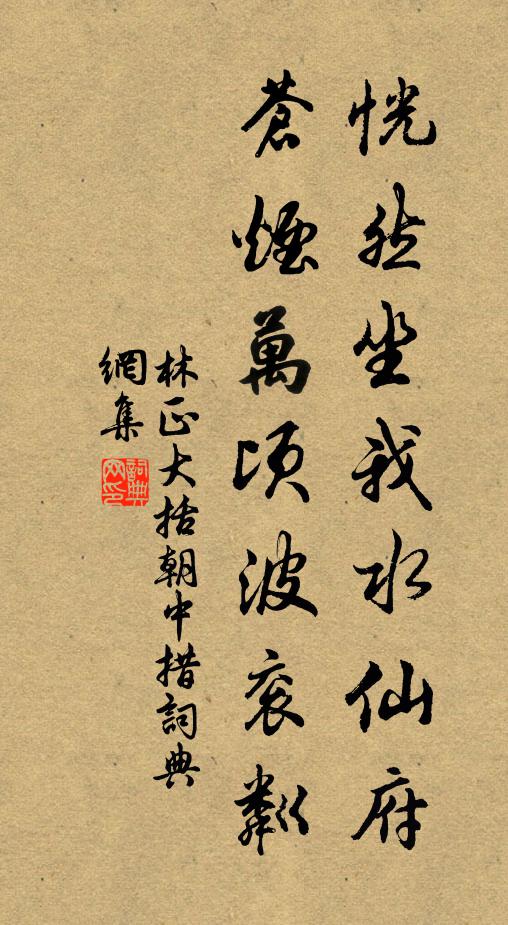 恍然坐我水仙府
蒼煙萬頃波衮粼
林正大括朝中措詞典
網集
詞典
网印